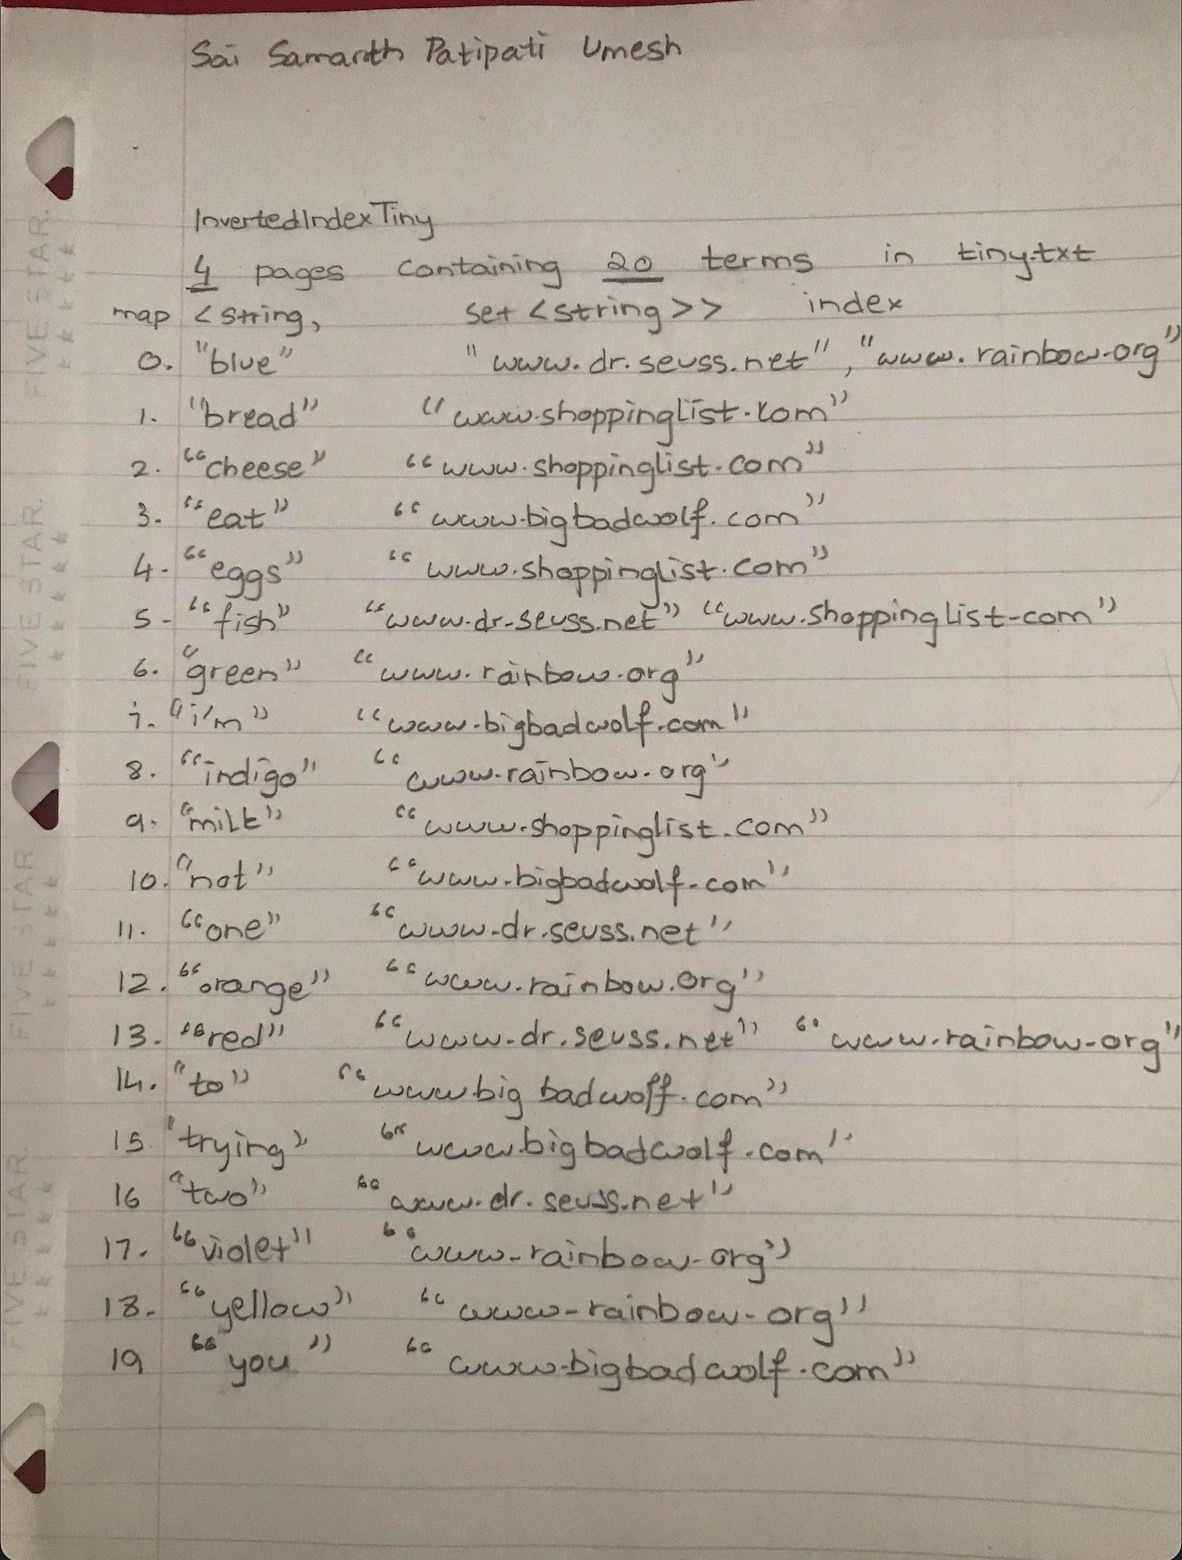 Sai Samarth Patipati Umesh
InvertedIndexTiny
4 pages containing 20 terms in tiny.txt
map <string, set <string>> index
0. "blue" "www.dr.seuss.net", "www.rainbow.org"
1. "bread" "www.shoppinglist.com"
2. "cheese" "www.shoppinglist.com"
3. "eat" "www.bigbadwolf.com"
4. "eggs" "www.shoppinglist.com"
5. "fish" "www.dr.seuss.net" "www.shoppinglist.com"
6. "green" "www.rainbow.org"
7. "i'm" "www.bigbadwolf.com"
8. "indigo" "www.rainbow.org"
9. "milk" "www.shoppinglist.com"
10. "not" "www.bigbadwolf.com"
11. "one" "www.dr.seuss.net"
12. "orange" "www.rainbow.org"
13. "red" "www.dr.seuss.net" "www.rainbow.org"
14. "to" "www.bigbadwolf.com"
15 "trying" "www.bigbadwolf.com"
16 "two" "www.dr.seuss.net"
17. "violet" "www.rainbow.org"
18. "yellow" "www.rainbow.org"
19 "you" "www.bigbadwolf.com"
FIVE STAR.
FIVE STAR.
FIVE STAR
FIVE STAR